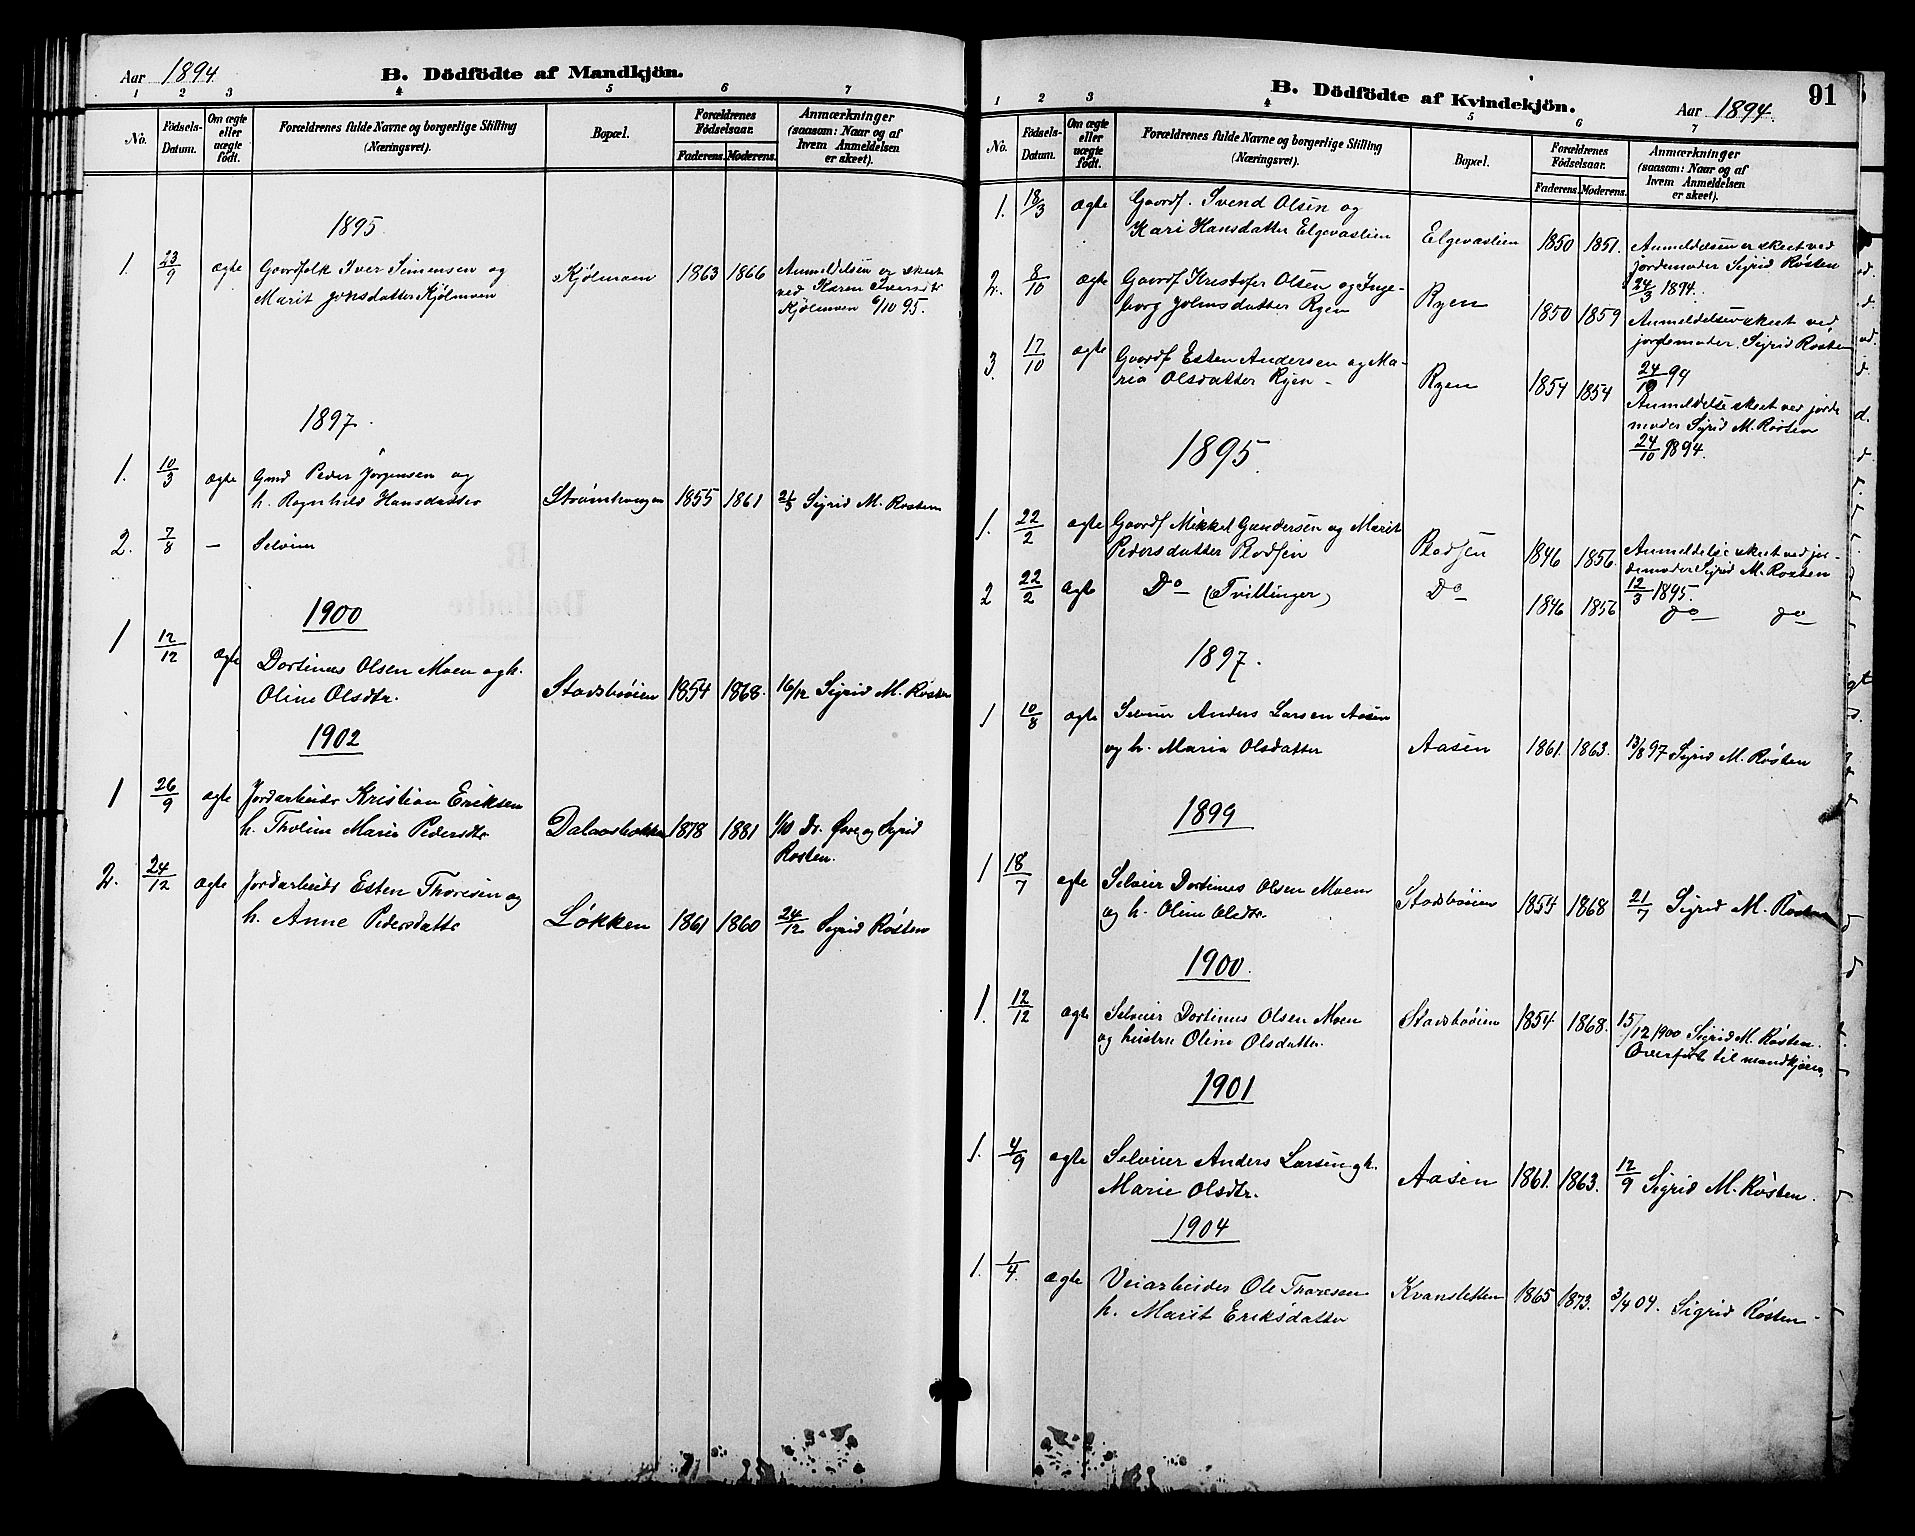 Aar 1894
B. Dödfödte af Mandkjön.
1 2 3 4 5 6 7
No.
Födsels-Datum.
Om ægte eller uægte født.
Forældrenes fulde Navne og borgerlige Stilling
(Næringsvei).
Bopæl.
Forældrenes Fødselsaar.
Faderens. Moderens.
Anmærkninger
(saasom: Naar og af
hvem Anmeldelsen
er skeet).
1895
1. 23/9 ægte Gaardfolk Iver Simensen og
Marit Jonsdatter Kjölmoen
Kjölmoen 1863 1866
Anmeldelsen er skeet
ved Karen
Kjölmoen 6/10 95.
1897.
1. 10/3 ægte Gmd Peder Jörgensen og
h. Ragnhild Hansdatter
1855 1861 Sigrid M. Røsten
2. 7/8 — Selveier
1900
1 12/12 ægte Dortinus Olsen Moen og h.
Oline Olsdtr.
Stadsbøien 1854 1868. 16/12 Sigrid M. Røsten
1902
1 26/9 ægte Jordarbeider Kristian Eriksen
h. Tholine Marie Pedersdtr
Dalaasbakken 1878 1881 1/10 Dr. Øvre og Sigrid
Røsten.
2. 24/12 ægte Jordarbeider Esten Thoresen og
h. Anne Pedersdatter
Løkken 1861 1860 24/12 Sigrid Røsten
B. Dödfödte af Kvindekjön.
Aar 1894.
91
1 2 3 4 5 6 7
No.
Födsels-Datum.
Om ægte eller uægte født.
Forældrenes fulde Navne og borgerlige Stilling
(Næringsvei).
Bopæl.
Forældrenes Fødselsaar.
Faderens. Moderens.
Anmærkninger
(saasom: Naar og af
hvem Anmeldelsen
er skeet).
1. 18/3 ægte Gaardf. Svend Olsen og
Kari Hansdatter Elgevaslien
Elgevaslien 1850 1851.
Anmeldelsen er skeet ved
jordemoder Sigrid Røsten
24/3 1894.
2. 8/10 ægte Gaardf Kristofer Olsen og Inge-
borg Johnsdatter Ryen
Ryen 1850 1859
Anmeldelsen skeet ved
jordemoder Sigrid Røsten
24/10 94
3. 17/10 ægte Gaardf Esten Andersen og Ma-
ria Olsdatter Ryen -
Ryen 1854 1854
Anmeldelse skeet ved jorde
moder Sigrid M. Røsten
24/10 1894.
1895.
1. 22/2 ægte Gaardf Mikkel Gundersen og Marit
Pedersdatter
1846 1856.
Anmeldelse skeet ved jor-
demoder Sigrid M. Røsten
12/3 1895.
2 22/2 ægte Do (Tvillinger) Do 1846 1856 do do
1897.
1 10/8 ægte Selveier Anders Larsen Aasen
og h. Maria Olsdatter
Aasen 1861. 1863. 13/8 97 Sigrid M. Røsten
1899
1 18/7 ægte Selveier Dortinus Olsen Moen
og h. Oline Olsdtr.
Stadsbøien 1854 1868 21/7 Sigrid M. Røsten
1900.
1. 12/12 ægte Selveier Dortinus Olsen Moen
og hustru Oline Olsdatter.
Stadsbøien 1854 1868. 15/12 1900 Sigrid M. Røsten.
Overført til mandkjøen,
1901
1. 4/9 ægte Selveier Anders Larsen og h.
Marie Olsdtr.
Aasen 1861. 1863. 12/9 Sigrid M. Røsten.
1904
1. 1/4. ægte Veiarbeider Ole Thoresen
h. Marit Eriksdatter
Kvansletten 1865 1873. 3/4 04. Sigrid Røsten -